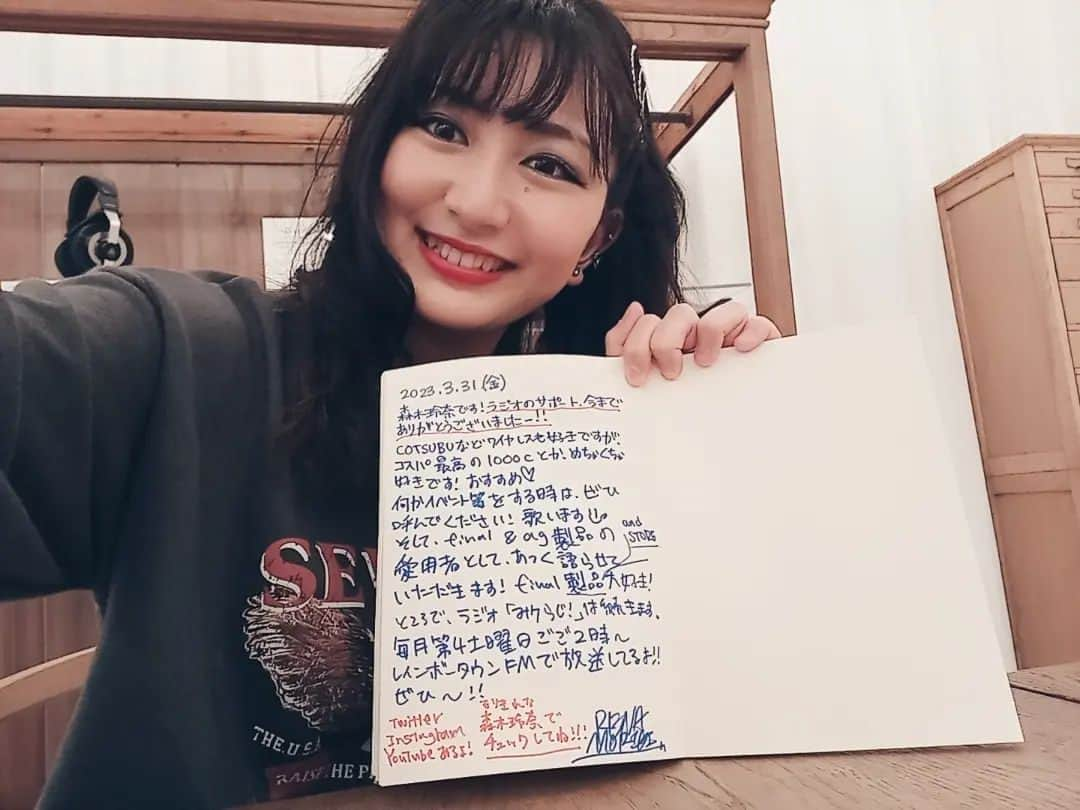 2023.3.31(金)
森木玲奈です!ラジオのサポート、今まで
ありがとうございましたー!!
COTSUBUなどワイヤレスも好きですが、
コスパ最高の1000Cとか、めちゃくちゃ
好きです!おすすめ♡
何かイベント等をする時は、ぜひ
呼んでください!歌います
そして、final & ag製品の
and STORE
愛用者として、あつく語らせて
いただきます!final製品大好き!
ところで、ラジオ「みクらじ!」は続きます。
毎月第4土曜日ごご2時〜
レインボータウンFMで放送してるよ!!
ぜひ〜!!
Twitter
Instagram
YouTubeあるよ!
もりきれな
森木玲奈、で
チェックしてね!!!
RENA
SE
THE.U.S
RAISE THE P